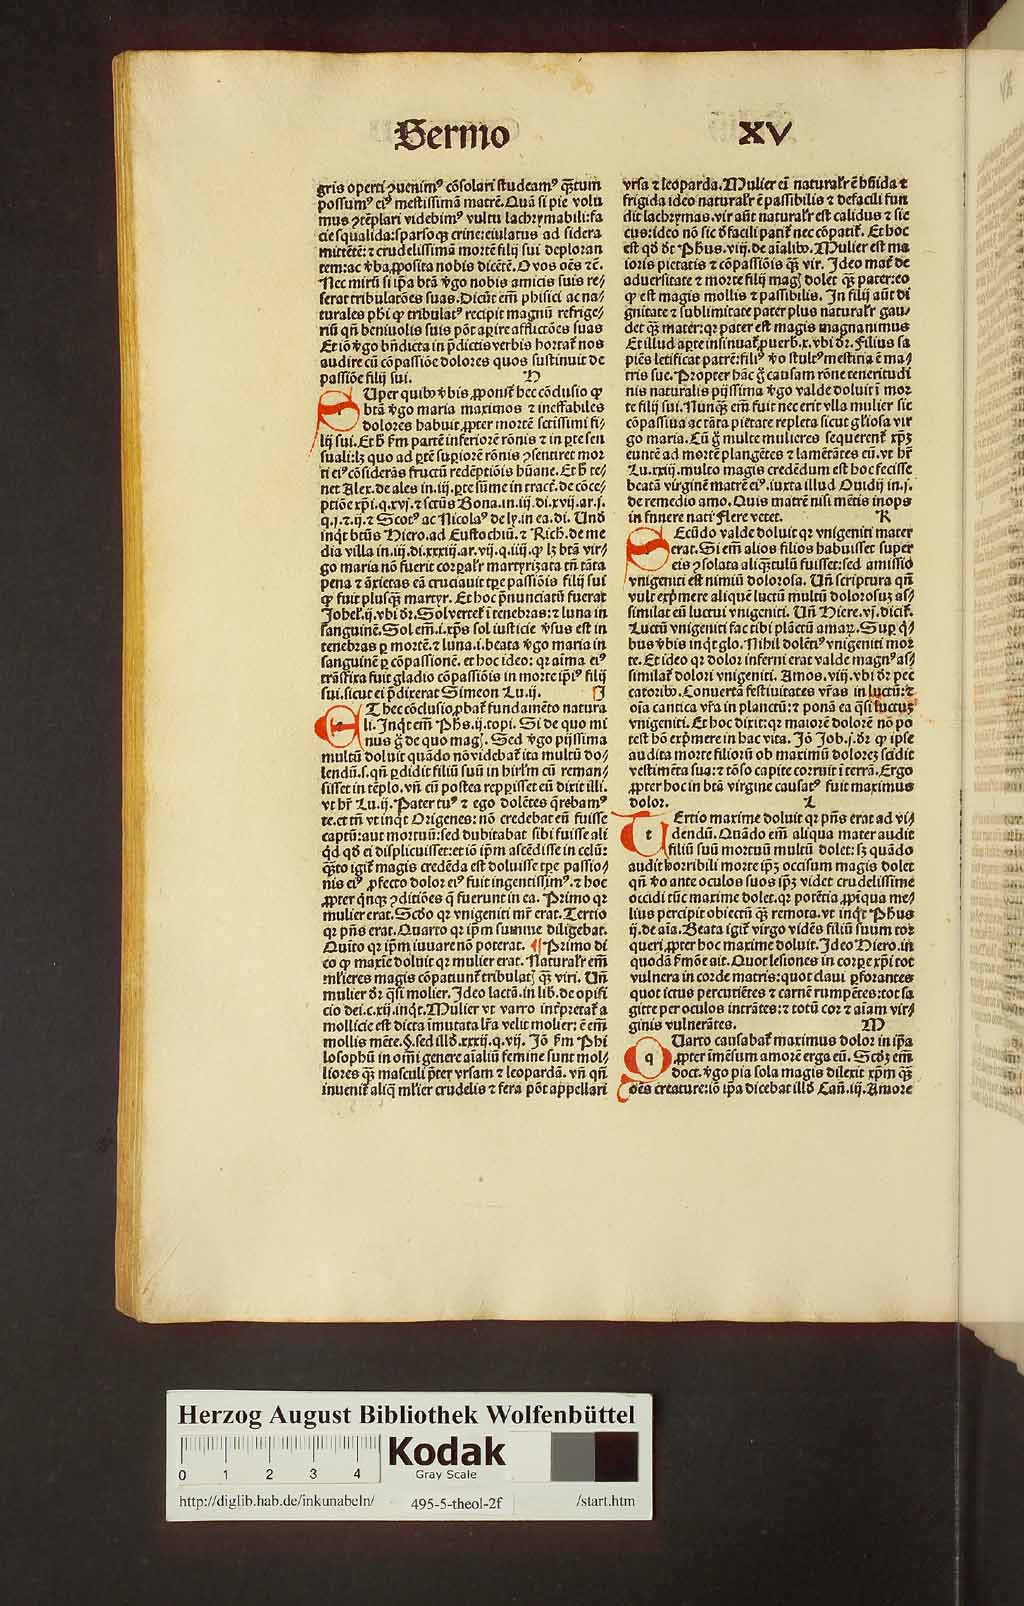 Sermo XV
gris operti ꝯuenimꝰ cōsolari studeamꝰ q̄ꝫtum
possumꝰ eiꝰ mestissimā matrē. Quā si pie volu
mus ꝯtēplari videbimꝰ vultu lachrymabili: fa
cie squalida: sparsoqꝫ crine: eiulatus ad sidera
mittētē: ⁊ crudelissimā mortē filij sui deploran
tem: ac v̄ba ꝓposita nobis dicētē. O vos oēs ⁊c̄.
Nec mirū si ip̄a btā v̄go nobis amicis suis re⸗
serat tribulatōes suas. Dicūt em̄ phisici ac na⸗
turales phi ꝙ tribulatꝰ recipit magnū refrige⸗
riū qn̄ beniuolis suis pōt aꝑire afflictōes suas
Et iō v̄go bn̄dicta in p̄dictis verbis hortat᷑ nos
audire cū cōpassiōe dolores quos sustinuit de
passiōe filij sui. H
SUper quibꝰ v̄bis ꝓponit᷑ hec cōclusio ꝙ
btā v̄go maria maximos ⁊ ineffabiles
dolores habuit ꝓpter mortē sctissimi fi⸗
lij sui. Et h̄ ẜm partē inferiorē rōnis ⁊ in ꝑte sen
suali: lꝫ quo ad ꝑtē suꝑiorē rōnis ꝯsentiret mor
ti eiꝰ cōsiderās fructū redēptiōis hūane. Et h̄ te⸗
net Alex. de ales in .iij. ꝑte sūme in tract. de cōce⸗
ptiōe xp̄i. q. xvj. ⁊ sctūs Bona. in .iij. di. xvij. ar. j.
q. j. ⁊ .ij. ⁊ Scotꝰ ac Nicolaꝰ de ly. in ea. di. Unō
inqͥt btūs Hiero. ad Eustochiū. ⁊ Rich. de me
dia villa in .iij. di. xxxiij. ar. vij. q. iiij. ꝙ lꝫ btā vir⸗
go maria nō fuerit corꝑalr̄ martyrizata tn̄ tāta
pena ⁊ āxietas eā cruciauit tꝑe passiōis filij sui
ꝙ fuit plusqꝫ̄ martyr. Et hoc p̄nunciatū fuerat
Johel. ij. vbi dr̄. Sol vertet᷑ ī tenebras: ⁊ luna in
sanguinē. Sol em̄ .i. xp̄s sol iusticie v̄sus est in
tenebras ꝑ mortē. ⁊ luna .i. beata v̄go maria in
sanguinē ꝑ cōpassionē. et hoc ideo: qꝛ aīma eiꝰ
trāsfixa fuit gladio cōpassiōis in morte ip̄iꝰ filij
sui. sicut ei p̄dixerat Simeon Lu. ij. J
ET hec cōclusio ꝓbat᷑ fundamēto natura
li. Inqͥt em̄ Phs. ij. topi. Si de quo mi
nus g̊ de quo magꝭ. Sed v̄go pijssima
multū doluit quādo nō videbat᷑ ita multū do⸗
lendū. s. qn̄ ꝑdidit filiū suū in hirlm̄ cū reman⸗
sisset in tēplo. vn̄ cū postea reꝑisset eū dixit illi.
vt hr̄ Lu. ij. Pater tuꝰ ⁊ ego dolētes q̄rebamꝰ
te. et tn̄ vt inqͥt Origenes: nō credebat eū fuisse
captū: aut mortuū: sed dubitabat sibi fuisse ali
qͥd qd̄ ei displicuisset: et iō ip̄m ascēdisse in celū:
q̄ꝫto igit᷑ magis credēda est doluisse tꝑe passio⸗
nis eiꝰ ꝓfecto dolor eiꝰ fuit ingentissimꝰ. ⁊ hoc
ꝓpter qͥnqꝫ ꝯditiōes q̄ fuerunt in ea. Primo qꝛ
mulier erat. Scd̄o qꝛ vnigeniti mr̄ erat. Tertio
qꝛ pn̄s erat. Quarto qꝛ ip̄m summe diligebat.
Quīto qꝛ ip̄m iuuare nō poterat. ¶ Primo di
co ꝙ maxīe doluit qꝛ mulier erat. Naturalr̄ em̄
ml̄ieres magis cōpatiunt᷑ tribulatꝭ qꝫ̄ viri. Un̄
mulier dr̄ qͣsi molier. Ideo lactā. in lib. de opifi
cio dei. c. xij. inqͥt. Mulier vt varro int̄pretat᷑ a
mollicie est dicta imutata lr̄a velit molier: ē em̄
mollis mēte. Ꝙ. sed illd̄. xxxij. q. vij. Iō ẜm Phi
losophū in om̄i genere aīaliū femine sunt mol⸗
liores qꝫ̄ masculi p̄ter vrsam ⁊ leopardā. vn̄ qn̄
inuenit᷑ aliq̄ ml̄ier crudelis ⁊ fera pōt appellari
vrsa ⁊ leoparda. Mulier em̄ naturalr̄ ē hūida ⁊
frigida ideo naturalr̄ ē passibilis ⁊ defacili fun
dit lachrymas. vir aūt naturalr̄ est calidus ⁊ sic
cus: ideo nō sic d̄facili patit᷑ nec cōpatit᷑. Et hoc
est qd̄ dt̄ Phus. viij. de aīalibꝰ. Mulier est ma
ioris pietatis ⁊ cōpassiōis qꝫ̄ vir. Ideo mat᷑ de
aduersitate ⁊ morte filij magꝭ dolet qꝫ̄ pater: eo
ꝙ est magis mollis ⁊ passibilis. In filij aūt di
gnitate ⁊ sublimitate pater plus naturalr̄ gau⸗
det qꝫ̄ mater: qꝛ pater est magis magnanimus
Et illud aꝑte insinuat᷑ ꝓuerb. x. vbi dr̄. Filius sa
piēs letificat patrē: filiꝰ v̄o stultꝰ mestitia ē ma⸗
tris sue. Propter hāc g̊ causam rōne teneritudi
nis naturalis pijssima v̄go valde doluit ī mor
te filij sui. Nunqꝫ̄ em̄ fuit nec erit vlla mulier sic
cōpassiua ac tāta pietate repleta sicut gl̄iosa vir
go maria. Cū g̊ multe mulieres sequerent᷑ xp̄ꝫ
euntē ad mortē plangētes ⁊ lamētātes eū. vt hr̄
Lu. xxiij. multo magis credēdum est hoc fecisse
beatā virginē matrē eiꝰ. iuxta illud Ouidij in .j.
de remedio amo. Quis matrē nisi mētis inops
in funere nati Flere vetet. K
SEcūdo valde doluit qꝛ vnigeniti mater
erat. Si em̄ alios filios habuisset super
eis ꝯsolata aliqͣntulū fuisset: sed amissio
vnigeniti est nimiū dolorosa. Un̄ scriptura qn̄
vult exp̄mere aliquē luctū multū dolorosuꝫ as⸗
similat eū luctui vnigeniti. Un̄ Hiere. vj. dicit᷑.
Luctū vnigeniti fac tibi plāctū amaꝝ. Suꝑ qͥ⸗
bus v̄bis inqͥt glo. Nihil dolētiꝰ vnigeniti mor
te. Et ideo qꝛ dolor inferni erat valde magnꝰ as⸗
similat᷑ dolori vnigeniti. Amos. viij. vbi dr̄ pec
catoribꝰ. Conuertā festiuitates vr̄as in luctū: ⁊
oīa cantica vr̄a in planctū: ⁊ ponā ea qͣsi luctuꝫ
vnigeniti. Et hoc dixit: qꝛ maiorē dolorē nō po
test hō exp̄mere in hac vita. Iō Job. j. dr̄ ꝙ ipse
audita morte filiorū ob maximū doloreꝫ scidit
vestimēta sua: ⁊ tōso capite corruit ī terrā. Ergo
ꝓpter hoc in btā virgine causatꝰ fuit maximus
dolor. L
TErtio maxime doluit qꝛ pn̄s erat ad vi⸗
dendū. Quādo em̄ aliqua mater audit
filiū suū mortuū multū dolet: sꝫ quādo
audit horribili morte ip̄ꝫ occisum magis dolet
qn̄ v̄o ante oculos suos ip̄ꝫ videt crudelissime
occidi tūc maxime dolet. qꝛ potētia ꝓpiqua me⸗
lius percipit obiectū qꝫ̄ remota. vt inqͥt Phus
ij. de aīa. Beata igit᷑ virgo vidēs filiū suum tor
queri ꝓpter hoc maxime doluit. Ideo Hiero. in
quodā ẜmōe ait. Quot lesiones in corꝑe xp̄i tot
vulnera in corde matris: quot claui ꝑforantes
quot ictus percutiētes ⁊ carnē rumpētes: tot sa
gitte per oculos intrātes: ⁊ totū cor ⁊ aīam vir⸗
ginis vulnerātes. M
QUarto causabat᷑ maximus dolor in ip̄a
ꝓpter īmēsum amorē erga eū. Scd̄ꝫ em̄
doct. v̄go pia sola magis dilexit xp̄m qꝫ̄
oēs creature: iō ip̄a dicebat illd̄ Can. iij. Amore
Herzog August Bibliothek Wolfenbüttel
0 1 2 3 4
Kodak
Gray Scale
http://diglib.hab.de/inkunabeln/ 495-5-theol-2f /start.htm